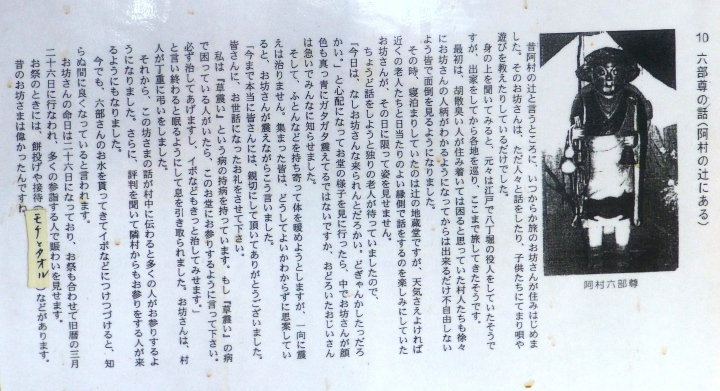 10 六部尊の話（阿村の辻にある）
阿村六部尊
昔阿村の辻と言うところに、いつからか旅のお坊さんが住みはじめま
した。そのお坊さんは、ただ人々と話をしたり、子供たちにてまり唄や
遊びを教えたりしているだけでした。
身の上を聞いてみると、元々は江戸で八丁堀の役人をしていたそうで
すが、出家をしてから各地を巡り、ここまで旅してきたそうです。
最初は、胡散臭い人が住み着いては困ると思っていた村人たちも徐々
にお坊さんの人柄がわかるようになってからは出来るだけ不自由しない
よう皆で面倒を見るようになりました。
その時、寝泊まりしていたのは辻の地蔵堂ですが、天気さえよければ
近くの老人たちと日当たりのよい縁側で話をするのを楽しみにしていた
お坊さんが、その日に限って姿を見せません。
ちょうど話をしようと独りの老人が待っていましたので、
「今日は、なしお坊さんな来られんとだろかい、どぎゃんかしたっだろ
かい。」と心配になってお堂の様子を見に行ったら、中でお坊さんが顔
色も真っ青にガタガタ震えてるではないですか、おどろいたおじいさん
は急いでみんなに知らせました。
そして、ふとんなどを持ち寄って体を暖めようとしますが、一向に震
えは治りません。集まった皆は、どうしてよいかわからずに思案してい
ると、お坊さんが震えながらこう言いました。
「今まで本当に皆さんには、親切にして頂いてありがとうございました。
皆さんに、お世話になったお礼をさせて下さい。
私は『草震い』という病の持病を持っています。もし『草震い』の病
で困っている人がいたら、このお堂にお参りするように言って下さい。
必ず治してあげますし、イボなどもきっと治してみせます。」
と言い終わると眠るようにして息を引き取られました。お坊さんは、村
人が丁重に弔いをしました。
それから、この坊さまの話が村中に伝わると多くの人がお参りするよ
うになりました。さらに、評判を聞いて隣村からもお参りをする人が来
るようにもなりました。
今でも、六部さんのお水を貰ってきてイボなどにつけつづけると、知
らぬ間に良くなっていると言われます。
お坊さんの命日は二十六日になっており、お祭も合わせて旧暦の三月
二十六日に行なわれ、多くの参詣する人で賑わいを見せます。
お祭のときには、餅投げや接待（モチとタオル）などがあります。
昔のお坊さまは偉かったんですね